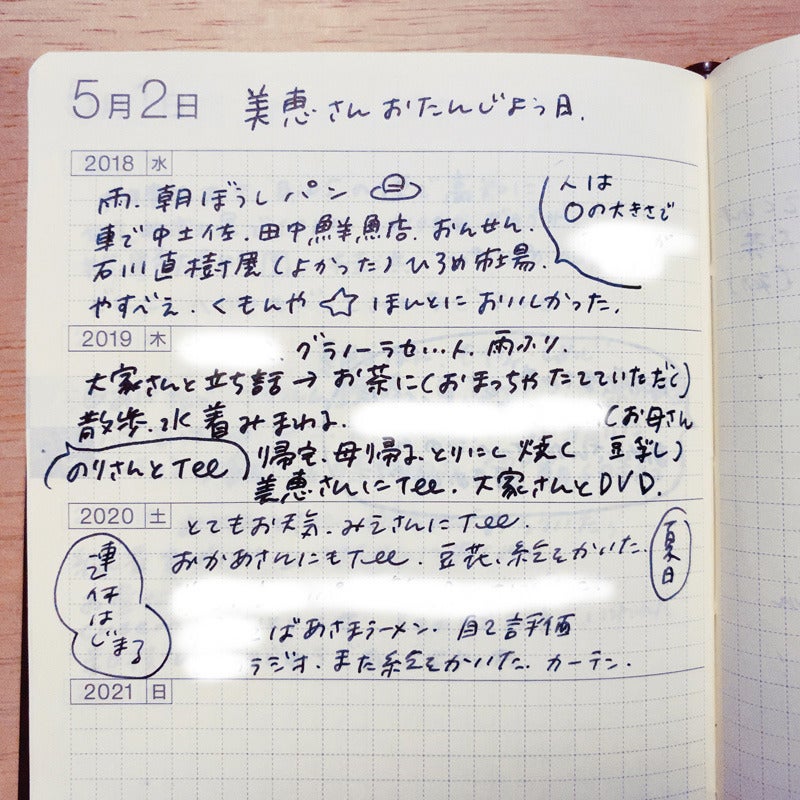 5月2日 美恵さんおたんじょう日.
2018 水
雨. 朝ぼうしパン
車で中土佐. 田中鮮魚店. おんせん.
石川直樹展(よかった)ひろめ市場.
やすべえ. くもんや ☆ ほんとにおいしかった.
人は
〇の大きさで
2019 木
. グラノーラせい人. 雨ふり.
大家さんと立ち話→お茶に(おまっちゃたてていただく)
散歩. 水着みまわる.
(お母さん
のりさんとTEL
帰宅. 母帰る とりにく焼く 豆ごはし)
美恵さんにTEL. 大家さんとDVD.
2020 土
とてもお天気. みえさんにTEL.
おかあさんにもTEL. 豆花. 絵をかいた.
夏日
連休はじまる
ばあさまラーメン. 自己評価
ラジオ. また絵をかいた. カーテン.
2021 日